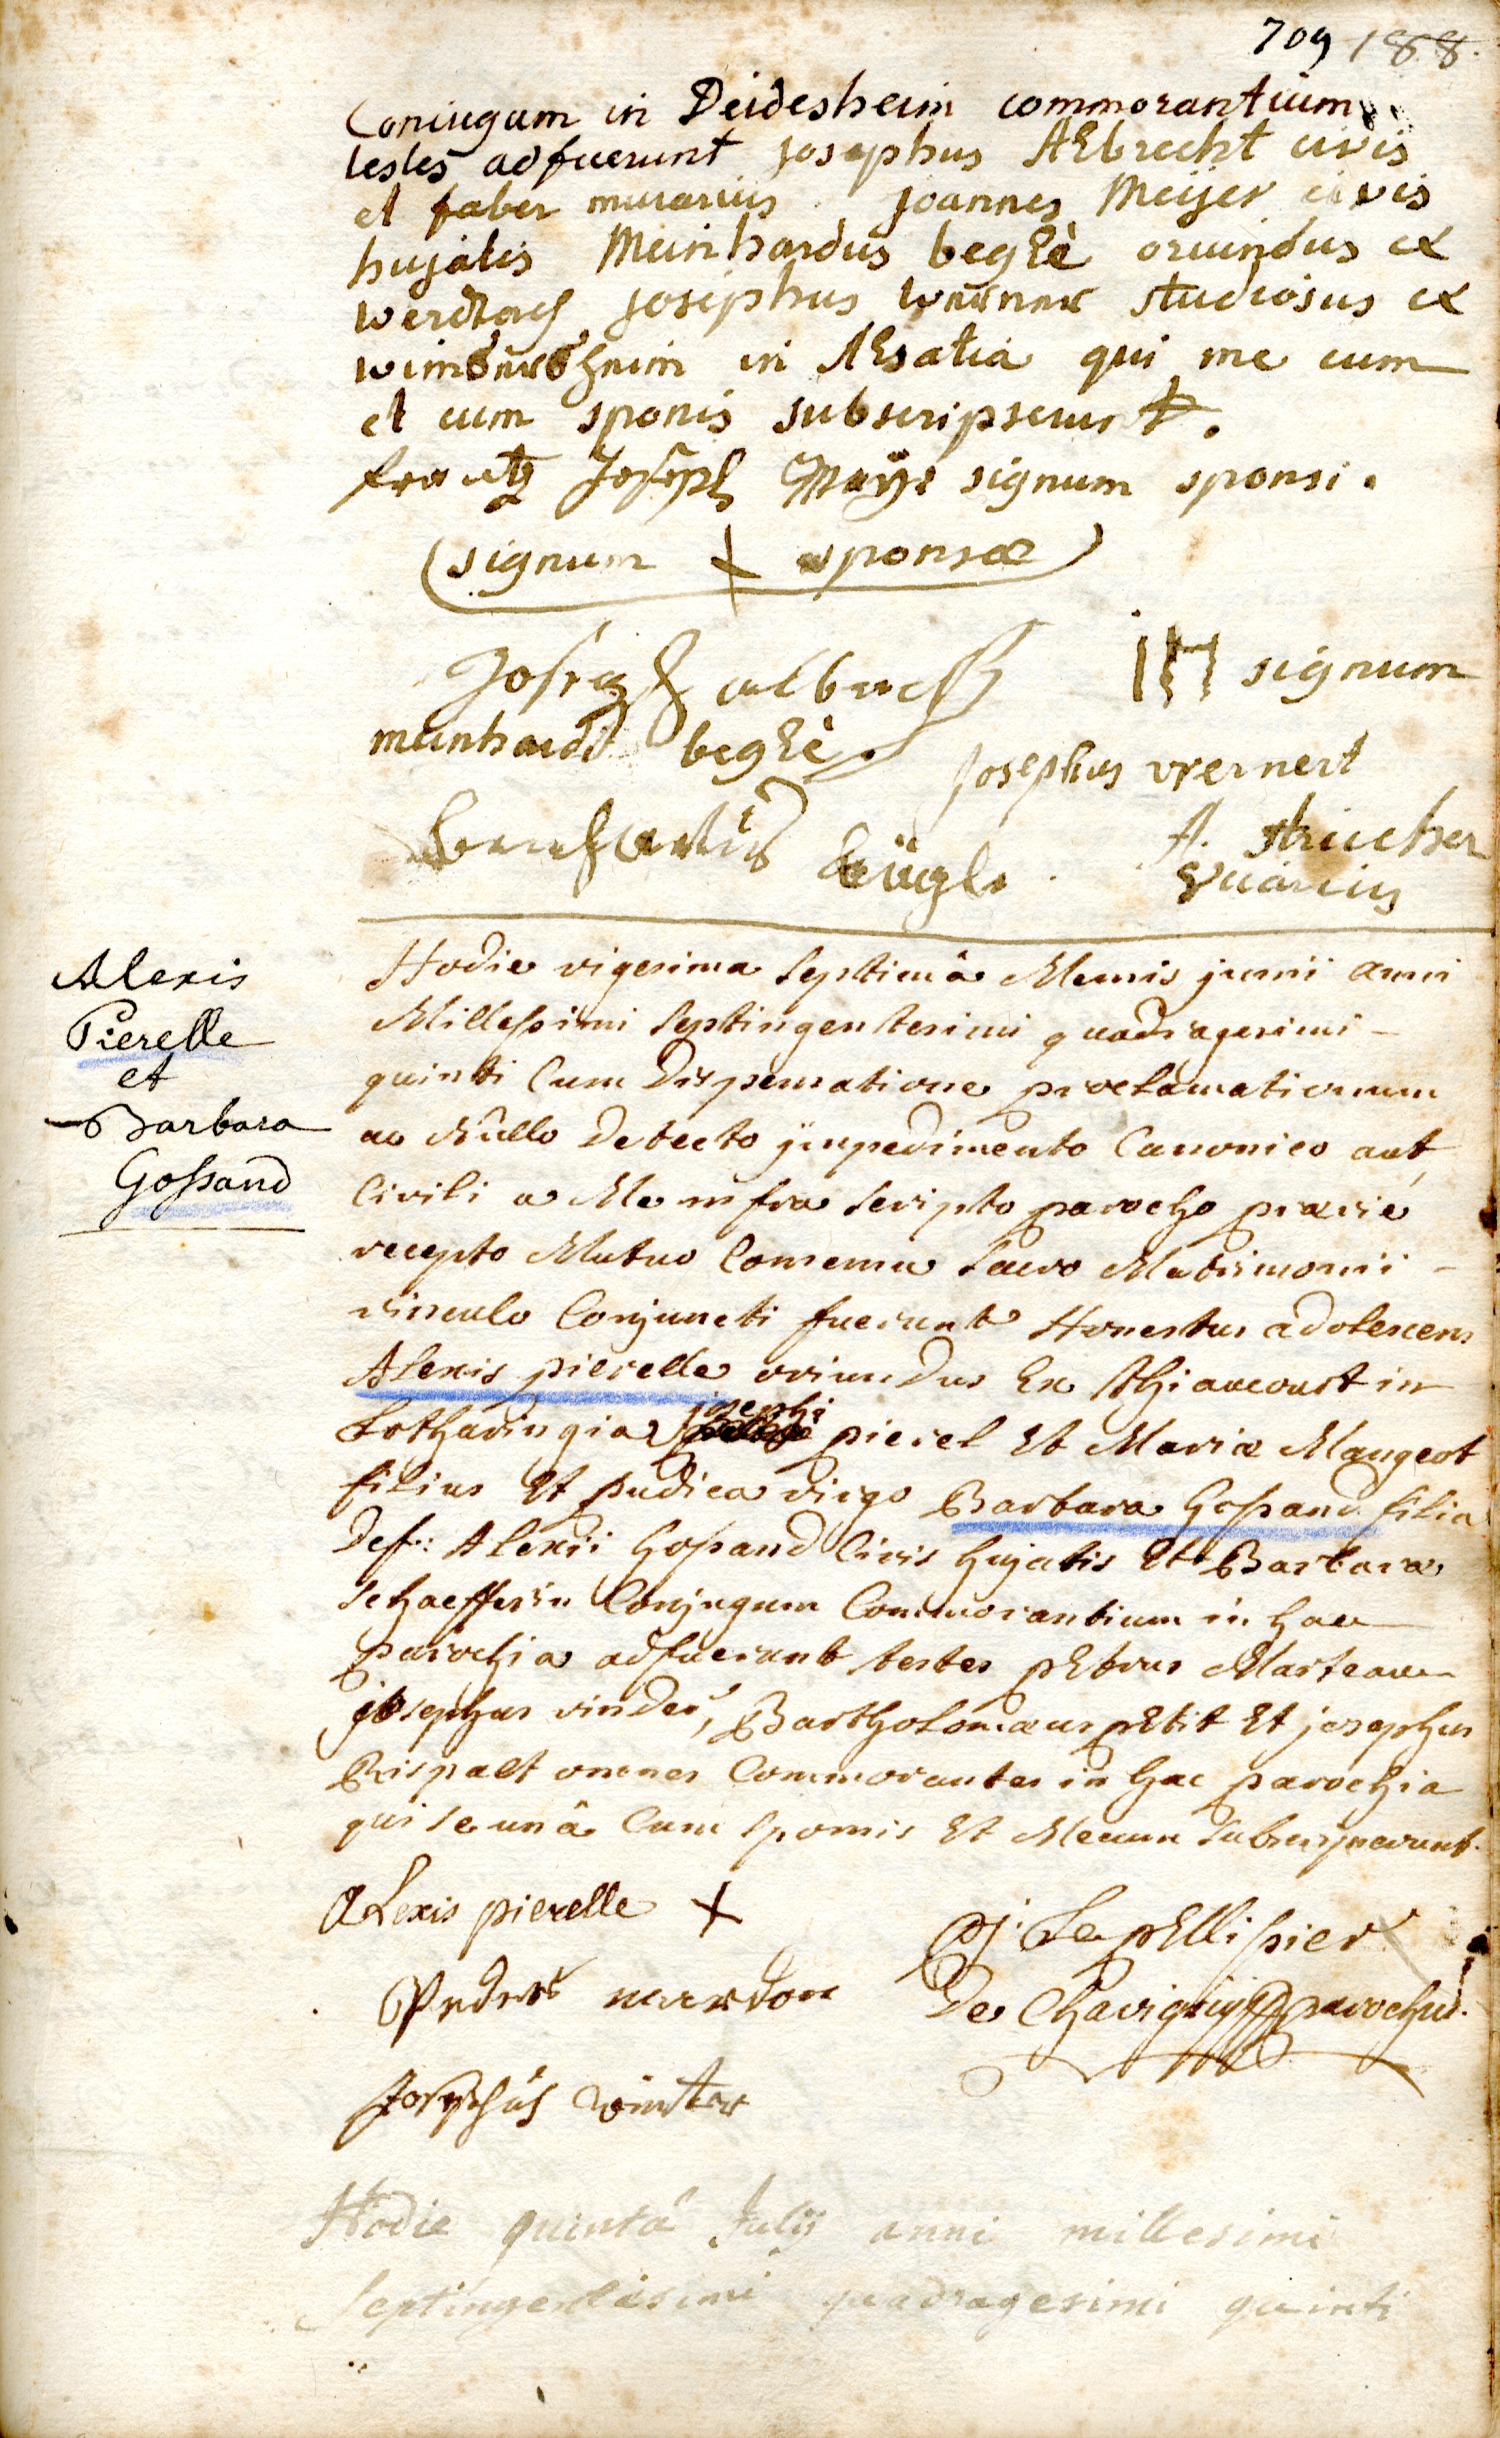 709 188.
Coniugum in Deidesheim commorantium
testes adfuerunt josephus Albrecht civis
et faber murarius joannes Meijer civis
hujatis Meinhardus beglè oriundus ex
josephus werner studiosus ex
in Alsatia qui me cum
et cum sponis subscripserunt.
Joseph Mayr signum sponsi.
(signum + sponsæ)
Joseph albrecht signum
meinhardt beglè.
josephus wernert
A. stricher
vicarius
Alexis
Pierelle
et
Barbara
Gossand
Hodie vigesima Septimâ Mensis junii anni
Millessimi Septingentesimi quadragesimi -
quinti Cum Dispensatione proclamationum
ac Nullo Detecto jmpedimento Canonico aut
Civili a Me infra Scripto parocho prævie
recepto Mutuo Consensu Sacro Matrimonii -
vinculo Conjuncti fuerunt Honestus adolescens
Alexis pierelle oriundus Ex thiaucourt in
Lotharingia josephi pierel Et Mariæ Maugeot
filius Et pudica virgo Barbara Gossand filia
Def: Alexii Gossand Civis hujatis Et Barbara
Schaefferin Conjugum Commorantium in hac
parochia adfuerunt testes pEtrus Marteau
josephus vinder, Bartholomæus pEtit Et josephus
Rispalt omnes Commorantes in hac parochia
qui se unâ Cum Sponsis Et Mecum Subscripserunt.
ALexis pierelle +
pj. Le pEllissier
De Chavigny parochus.
Josephus winter
Hodie quintâ Julÿ anni millesimi
septingentesimi quadragesimi quinti